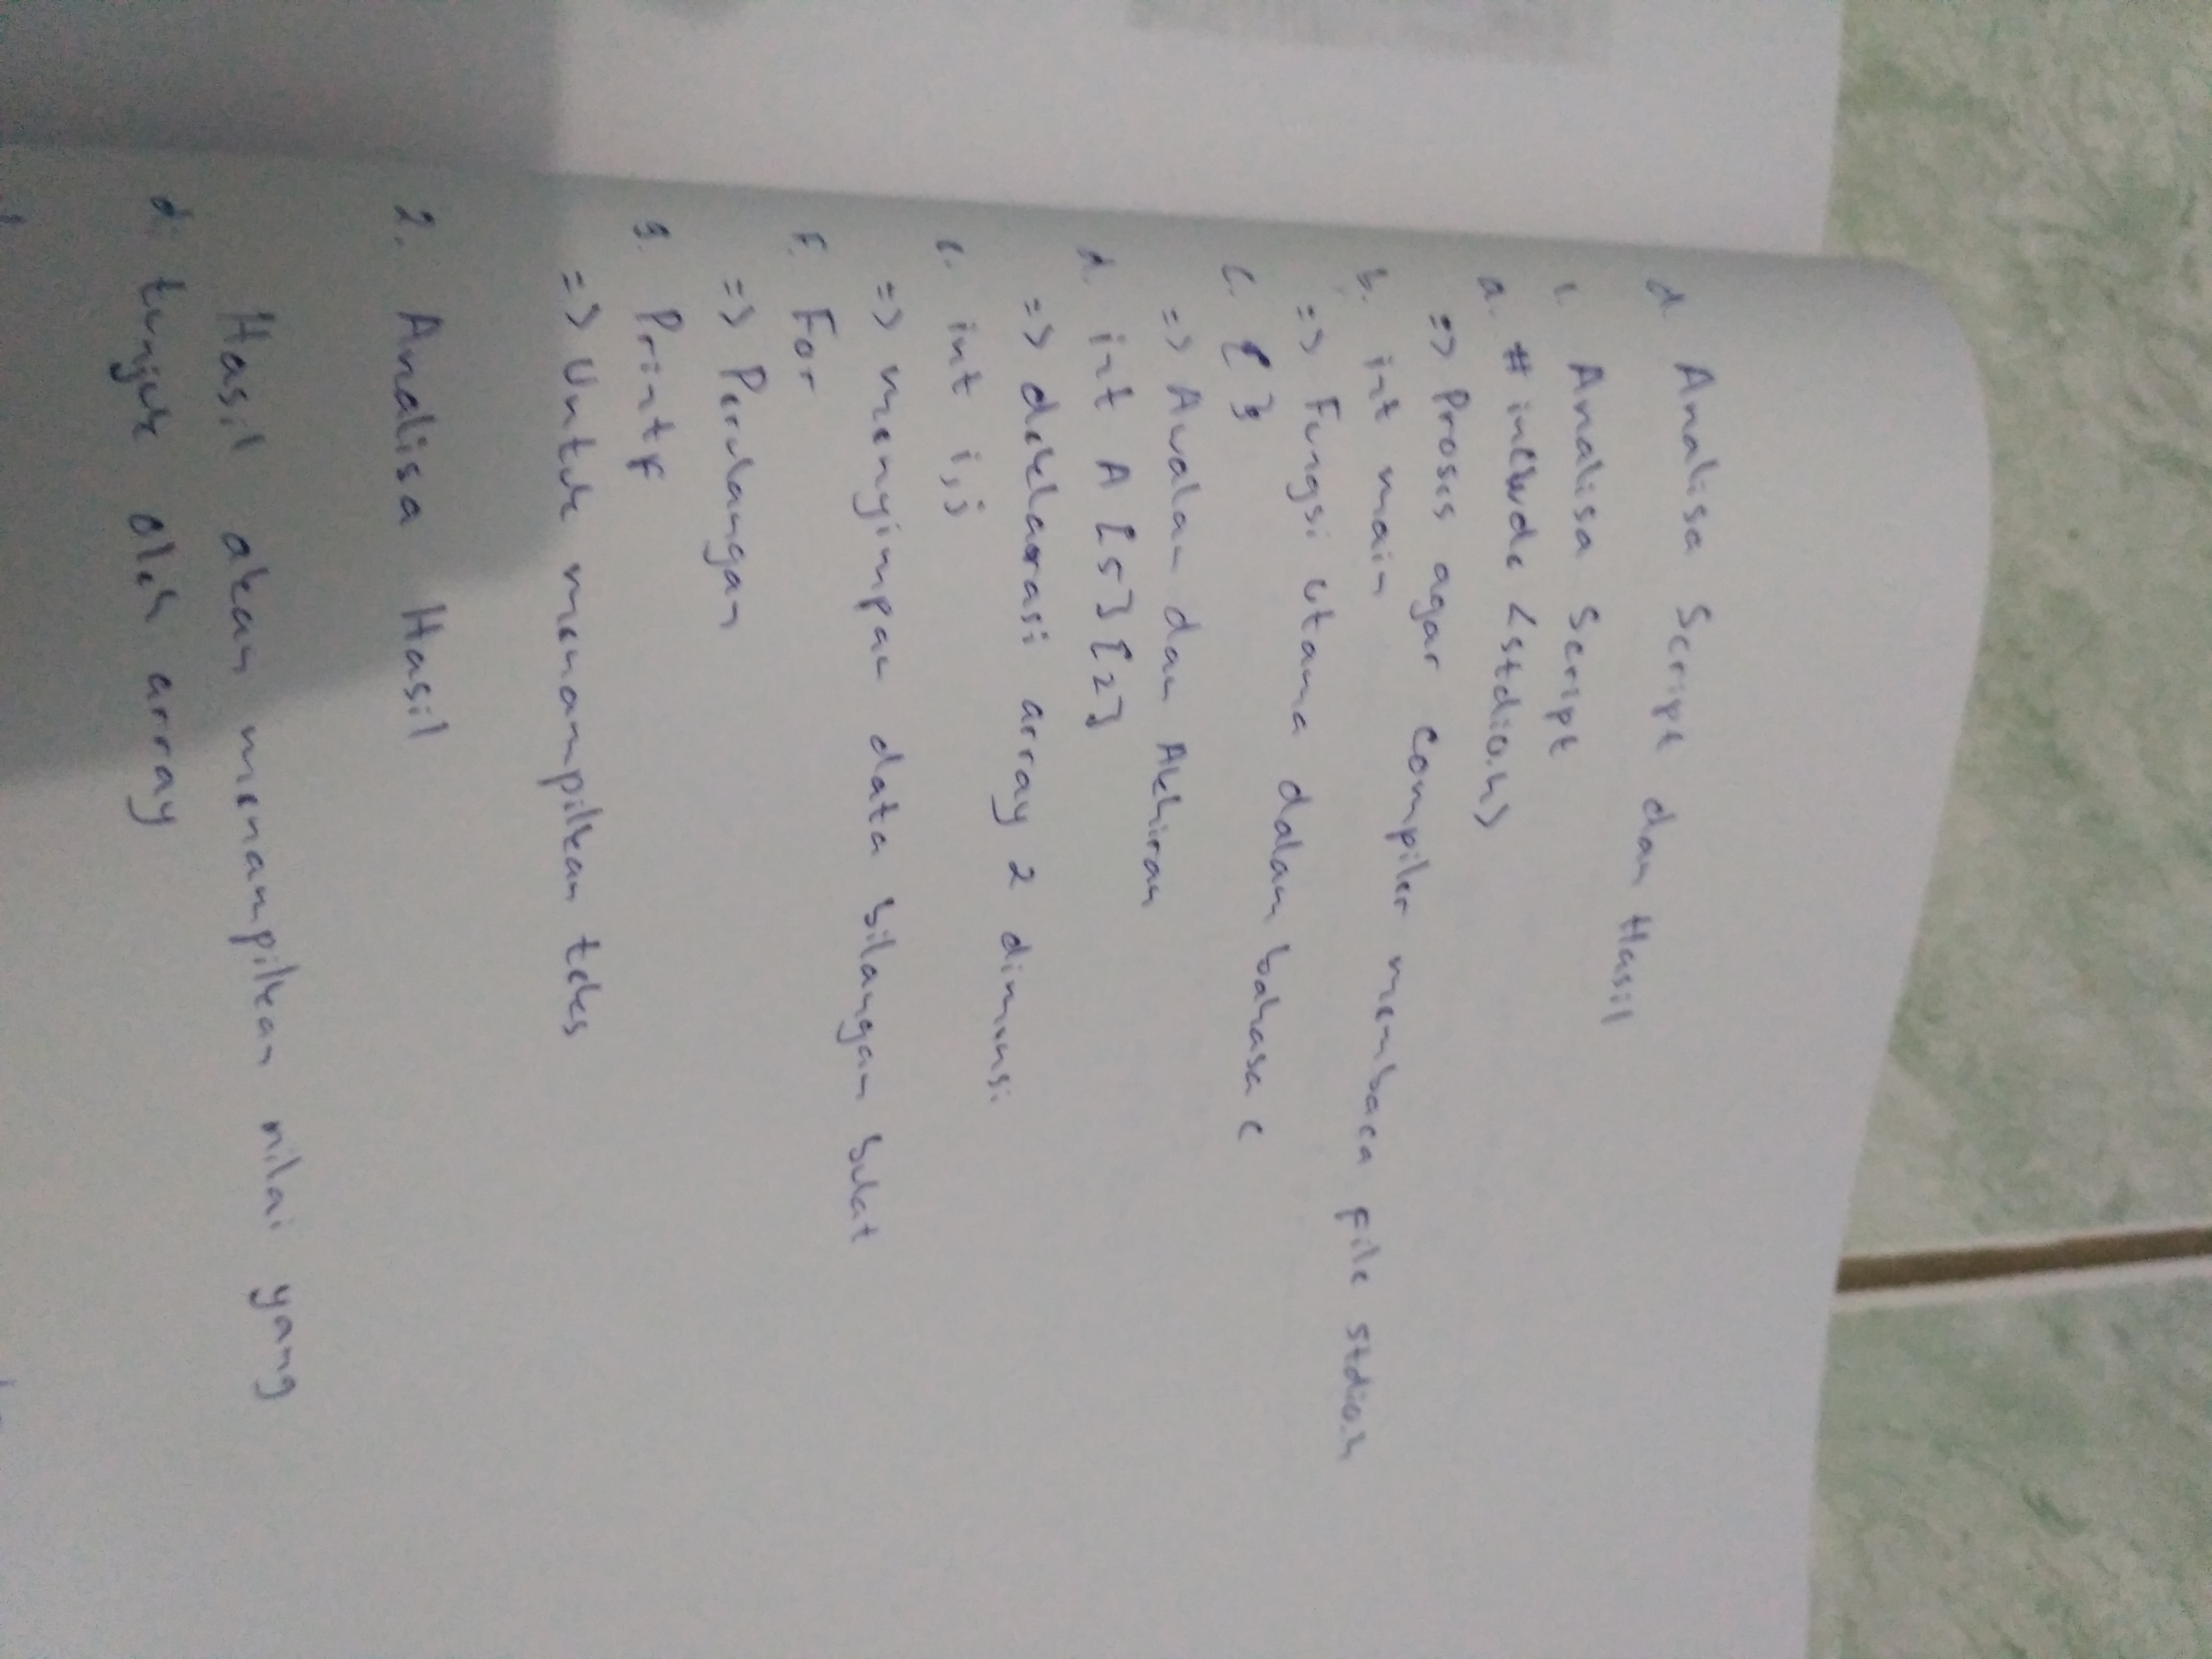 d. Analisa Script dan Hasil
1. Analisa Script
a. #include <stdio.h>
=> Proses agar compiler membaca file stdio.h
b. int main
=> Fungsi utama dalam bahasa C
c. { }
=> Awalan dan Akhiran
d. int A [5] [2]
=> deklarasi array 2 dimensi
e. int i, j
=> menyimpan data bilangan bulat
F. For
=> Perulangan
g. PrintF
=> Untuk menampilkan teks
2. Analisa Hasil
Hasil akan menampilkan nilai yang
di tunjuk oleh array